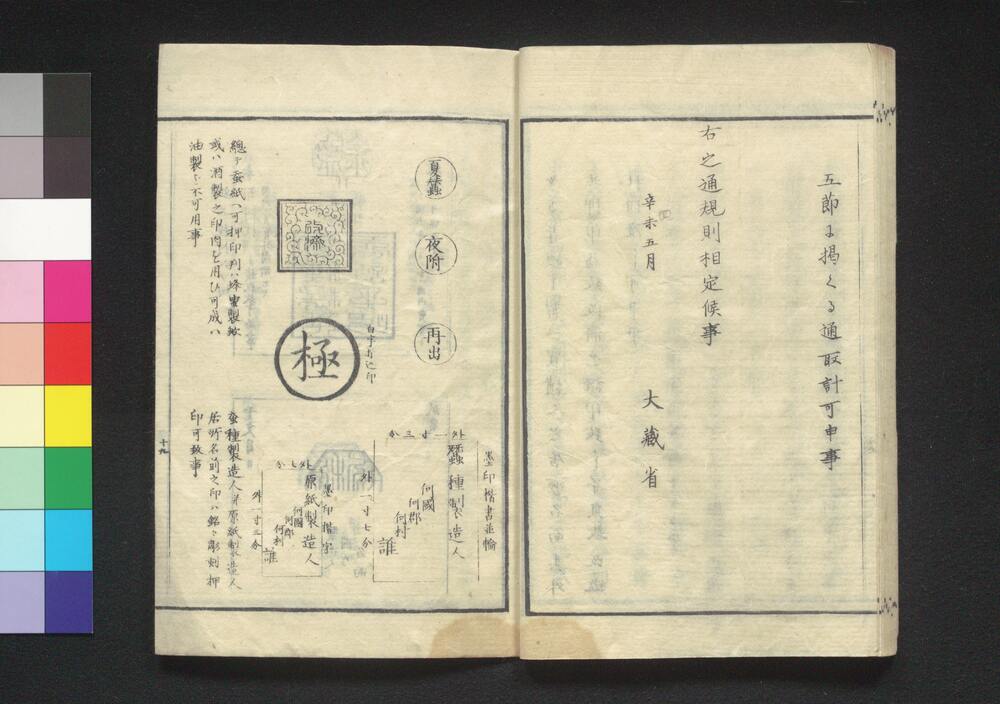 五節に掲くる通取計可申事
右之通規則相定候事
辛未五月
四
大藏省
夏蠶
夜附
再出
極
白字丸之印
墨印楷書並輪
外一寸三分
蠶種製造人
何國
何郡
何村
誰
外一寸七分
墨印楷字
外七分
原紙製造人
何國
何郡
何村
誰
外一寸三分
總テ蚕紙ヘ可押印判ハ
或ハ酒製之印肉を用ひ可成ハ
油製ハ不可用事
蚕種製造人并原紙製造人
居所名前之印ハ銘々彫刻押
印可致事
十九